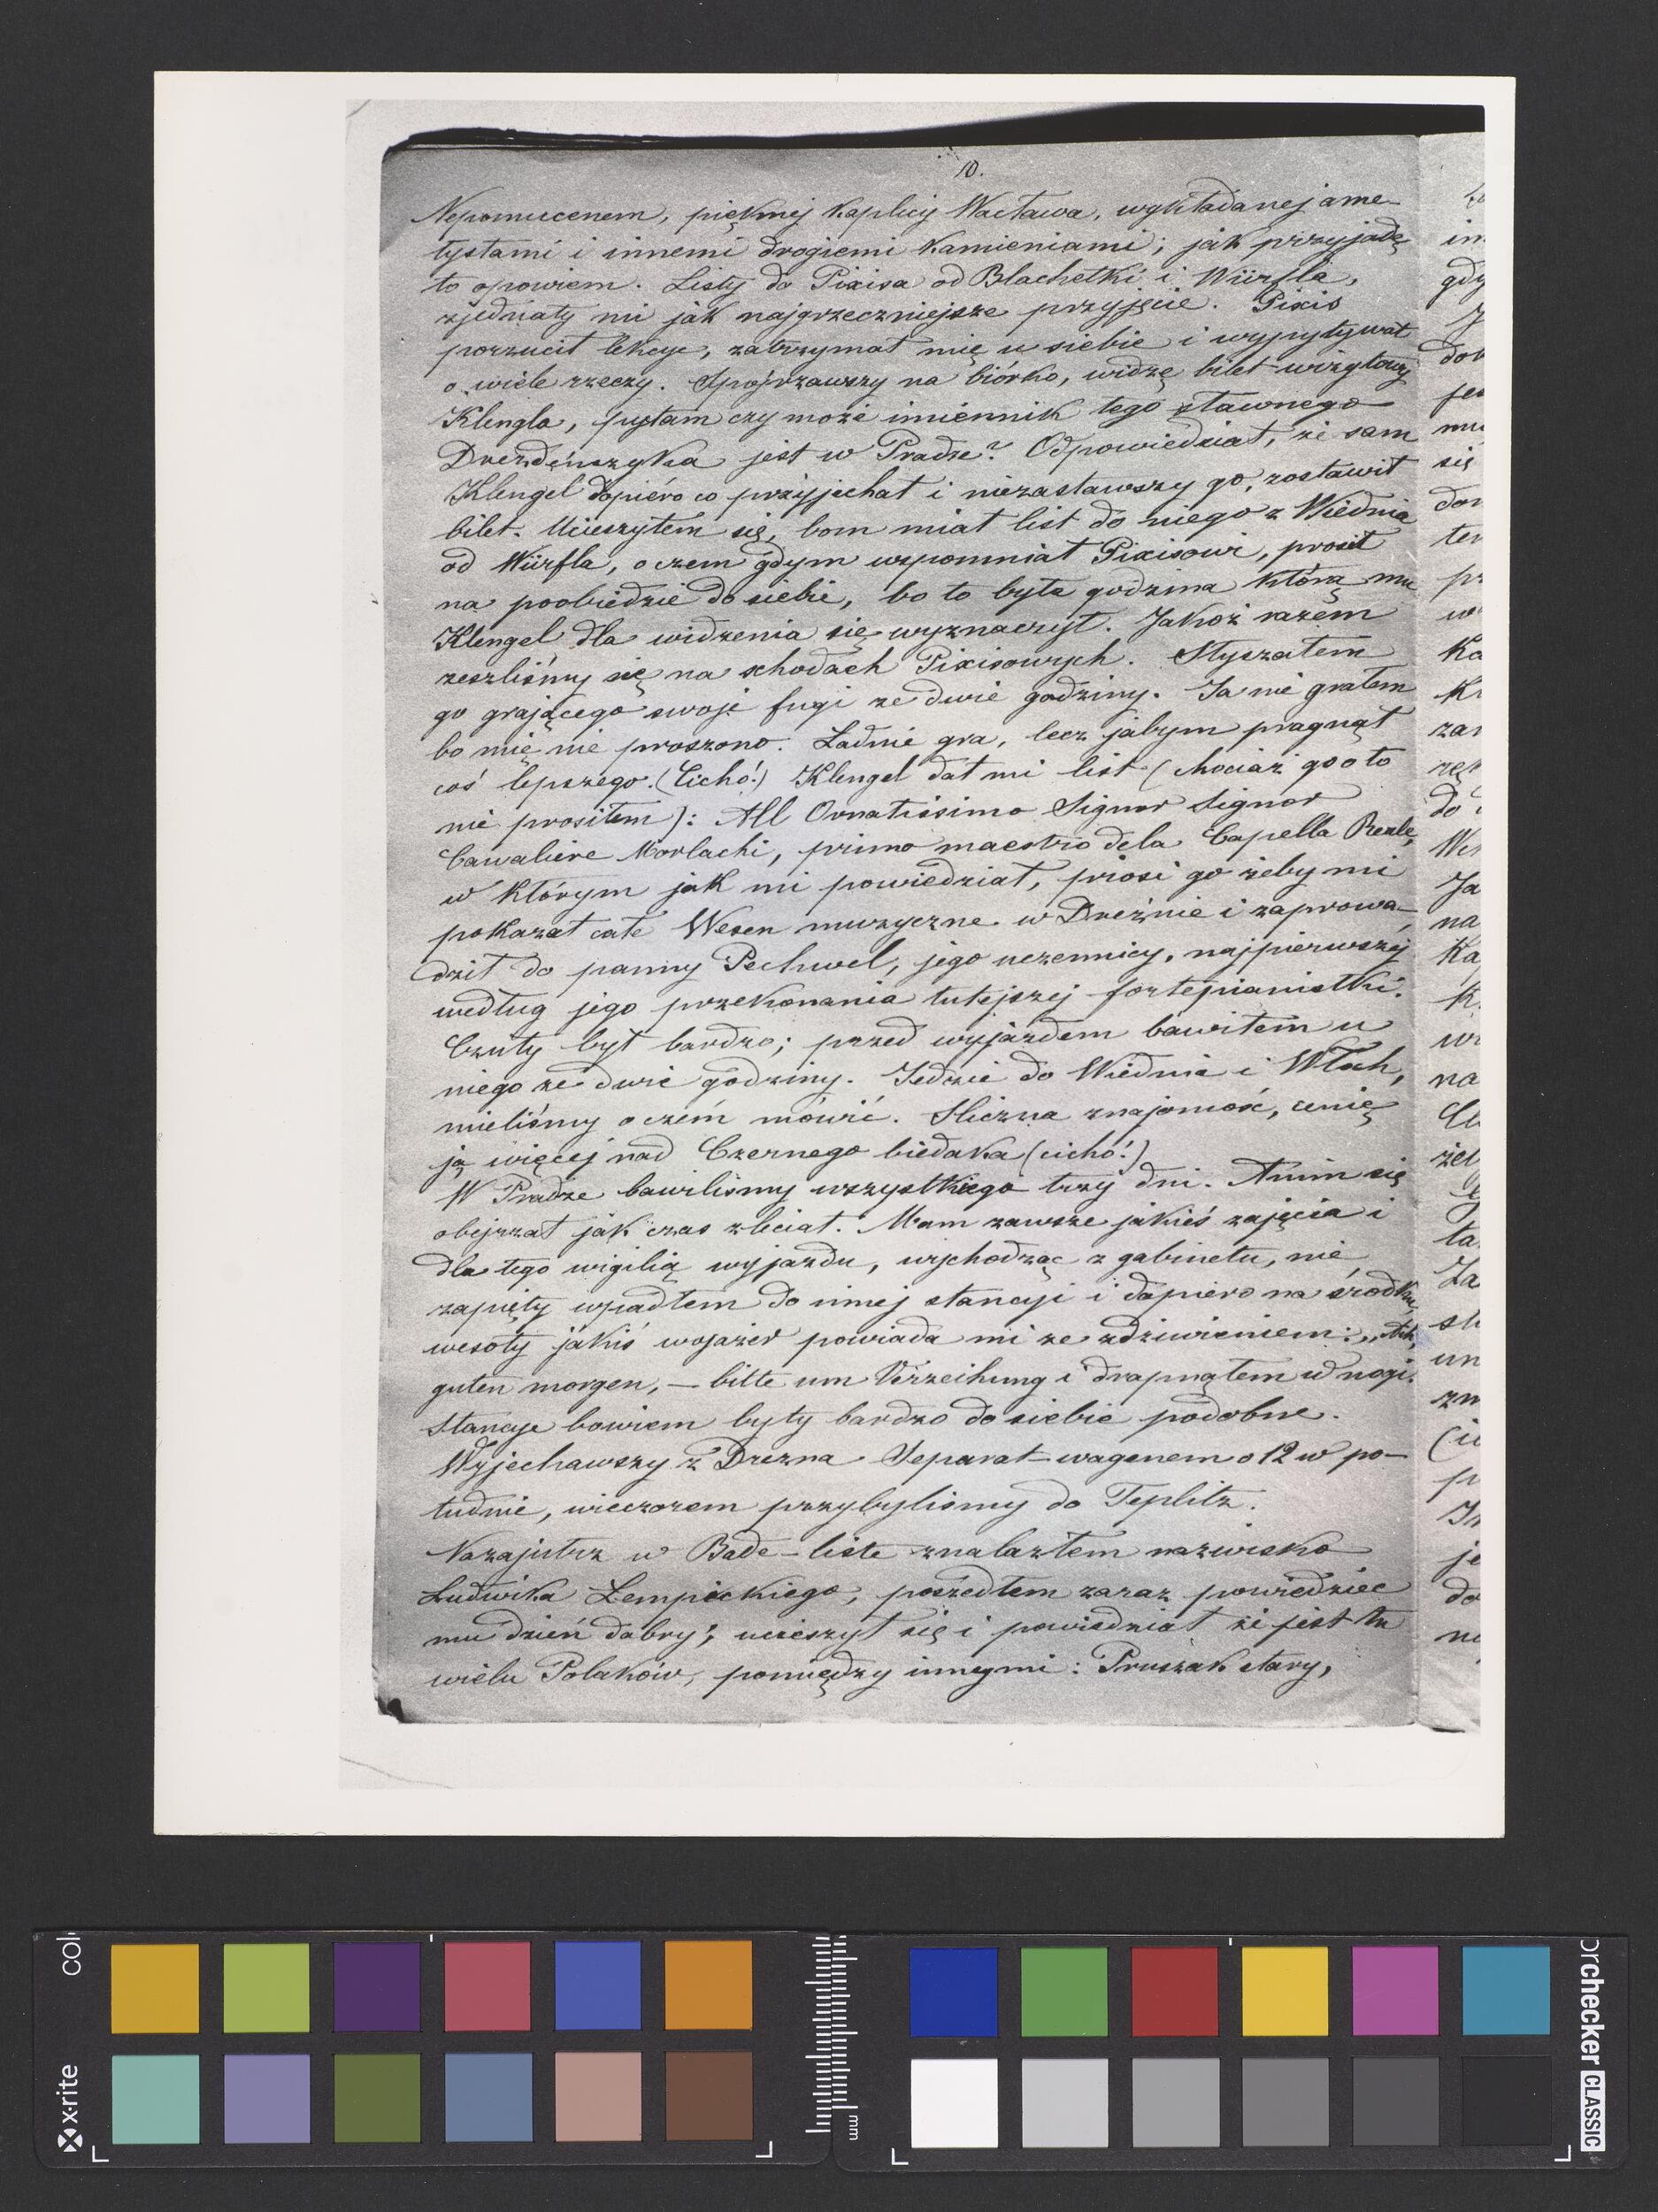 10.
Nepomucenem, pięknej kaplicy Wacława, wykładanej ame-
tystami i innemi drogiemi kamieniami; jak przyjadę
to opowiem. Listy do Pixisa od Blachetki i Würfla,
zjednały mi jak najgrzeczniejsze przyjęcie. Pixis
porzucił lekcye, zatrzymał mię u siebie i wypytywał
o wiele rzeczy. Spójrzawszy na biórko, widzę bilet wizytowy
Klengla, pytam czy może imiennik tego sławnego
Drezdeńczyka jest w Pradze? Odpowiedział, że sam
Klengel dopiéro co przyjechał i niezastawszy go, zostawił
bilet. Ucieszyłem się, bom miał list do niego z Wiednia
od Würfla, o czem gdym wspomniał Pixisowi, prosił
na poobiedzie do siebie, bo to była godzina którą mu
Klengel dla widzenia się wyznaczył. Jakoż razem
zeszliśmy się na schodach Pixisowych. Słyszałem
go grającego swoje fugi ze dwie godziny. Ja nie grałem
bo mię nie proszono. Ładnie gra, lecz jabym pragnął
coś lepszego. (Cicho!) Klengel dał mi list (chociaż go o to
nie prosiłem): All Ornatissimo Signor Signor
Cavaliere Morlachi, primo maestro dela Capella Reale,
w którym jak mi powiedział, prosi go żeby mi
pokazał całe Wesen muzyczne w Dreźnie i zaprowa-
dził do panny Pechwel, jego uczennicy, najpierwszéj
według jego przekonania tutejszej fortepianistki.
Czuły był bardzo; przed wyjazdem bawiłem u
niego ze dwie godziny. Jedzie do Wiednia i Włoch,
mieliśmy o czém mówić. Śliczna znajomość, cenię
ją więcéj nad Czernego biedaka (cicho!)
W Pradze bawiliśmy wszystkiego trzy dni. Anim się
obejrzał jak czas zleciał. Mam zawsze jakieś zajęcia i
dla tego wigilią wyjazdu, wychodząc z gabinetu, nie
zapięty wpadłem do innej stancyi i dopiero na środku,
wesoły jakiś wojażer powiada mi ze zdziwieniem: „Ach,
guten morgen, — bitte um Verzeihung i drapnąłem w nogi.
Stancye bowiem były bardzo do siebie podobne.
Wyjechawszy z Drezna Separat-wagenem o 12 w po-
łudnie, wieczorem przybyliśmy do Teplitz.
Nazajutrz w Bade-liste znalazłem nazwisko
Ludwika Łempickiego, poszedłem zaraz powiedzieć
mu dzień dobry; ucieszył się i powiedział że jest tu
wielu Polaków, pomiędzy innymi: Pruszak stary,
x-rite
colorchecker CLASSIC
mm